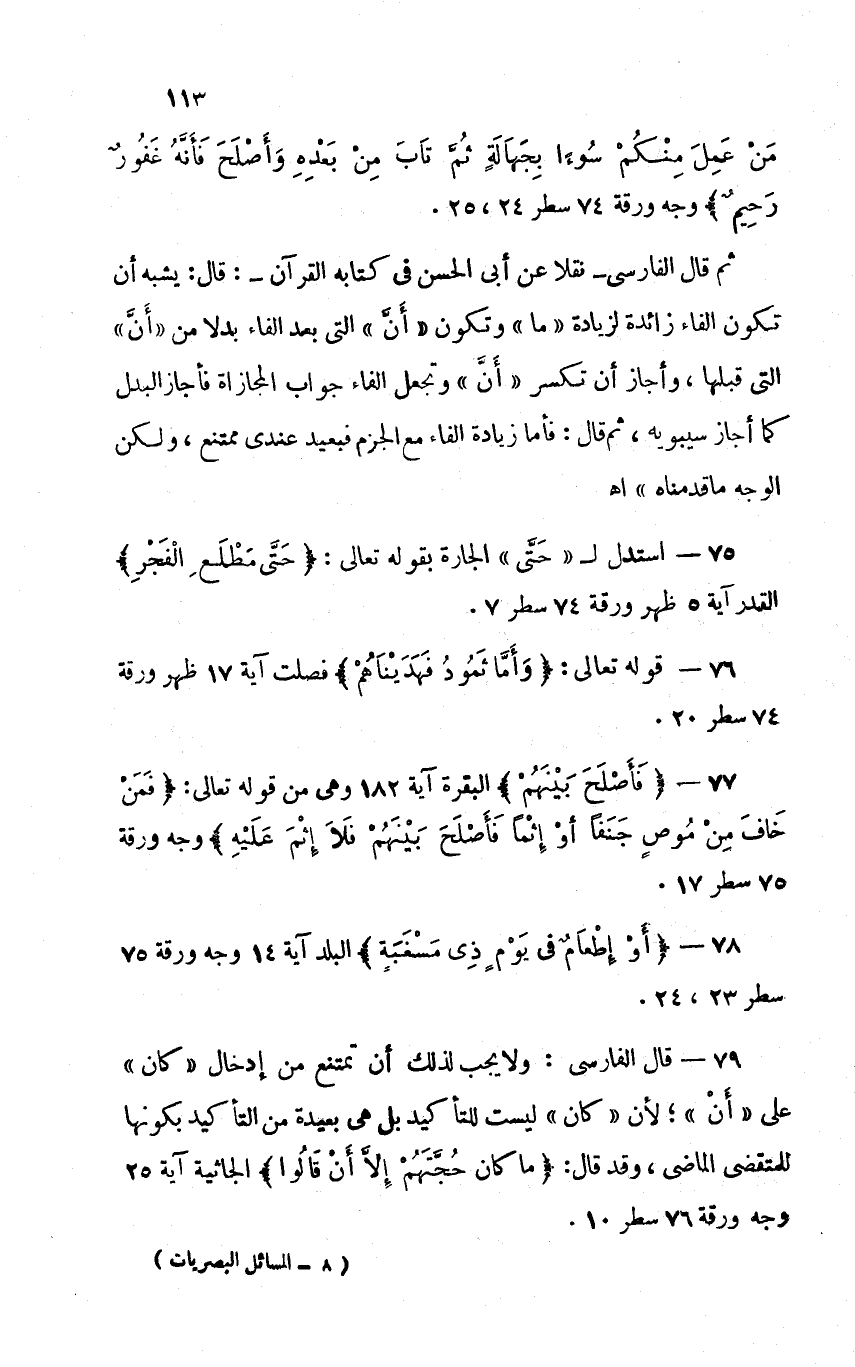 ١١٣
مَنْ عَمِلَ مِنْكُمْ سُوءًا بِجَهَالَةٍ ثُمَّ تَابَ مِنْ بَعْدِهِ وَأَصْلَحَ فَأَنَّهُ غَفُورٌ
رَحِيمٌ﴾ وجه ورقة ٧٤ سطر ٢٤ ، ٢٥ .
ثم قال الفارسى ــ نقلا عن أبى الحسن فى كتابه القرآن ــ : قال: يشبه أن
تكون الفاء زائدة لزيادة « ما » وتكون « أَنَّ » التى بعد الفاء بدلا من «أَنَّ»
التى قبلها ، وأجاز أن تكسر « أَنَّ » وتجعل الفاء جواب المجازاة فأجاز البدل
كما أجاز سيبويه ، ثم قال : فأما زيادة الفاء مع الجزم فبعيد عندى ممتنع ، ولكن
الوجه ماقدمناه » اه
٧٥ — استدل لـ « حَتَّى » الجارة بقوله تعالى : ﴿ حَتَّى مَطْلَعِ الْفَجْرِ ﴾
القدر آية ٥ ظهر ورقة ٧٤ سطر ٧ .
٧٦ — قوله تعالى : ﴿ وَأَمَّا ثَمُودُ فَهَدَيْنَاهُمْ ﴾ فصلت آية ١٧ ظهر ورقة
٧٤ سطر ٢٠ .
٧٧ — ﴿ فَأَصْلَحَ بَيْنَهُمْ ﴾ البقرة آية ١٨٢ وهى من قوله تعالى: ﴿ فَمَنْ
خَافَ مِنْ مُوصٍ جَنَفاً أوْ إِثْماً فَأَصْلَحَ بَيْنَهُمْ فَلاَ إِثْمَ عَلَيْهِ ﴾ وجه ورقة
٧٥ سطر ١٧ .
٧٨ — ﴿ أَوْ إِطْعَامٌ فى يَوْمٍ ذِى مَسْغَبَةٍ ﴾ البلد آية ١٤ وجه ورقة ٧٥
سطر ٢٣ ، ٢٤ .
٧٩ — قال الفارسى : ولايجب لذلك أن تمتنع من إدخال « كان »
على « أَنْ » ؛ لأن « كان » ليست للتأكيد بل هى بعيدة من التأكيد بكونها
للمتقضى الماضى ، وقد قال: ﴿ ما كان حُجَّتَهُمْ إِلاَّ أَنْ قَالُوا ﴾ الجاثية آية ٢٥
وجه ورقة ٧٦ سطر ١٠ .
( ٨ ــ المسائل البصريات )